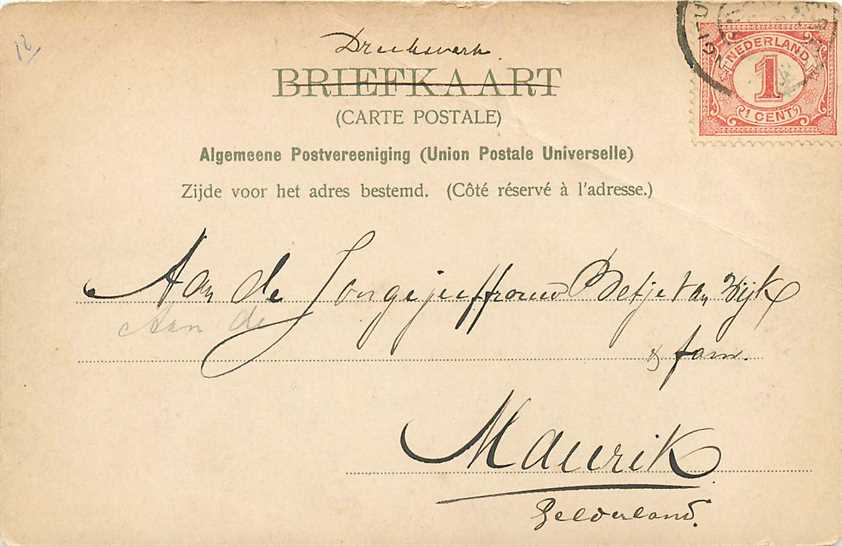 12
Drukwerk
BRIEFKAART
(CARTE POSTALE)
Algemeene Postvereeniging (Union Postale Universelle)
Zijde voor het adres bestemd. (Côté réservé à l'adresse.)
NEDERLAND
1
(1 CENT)
Aan de Jongejuffrouw Betje van Wijk
Aan de
& fam.
Maurik
Gelderland.